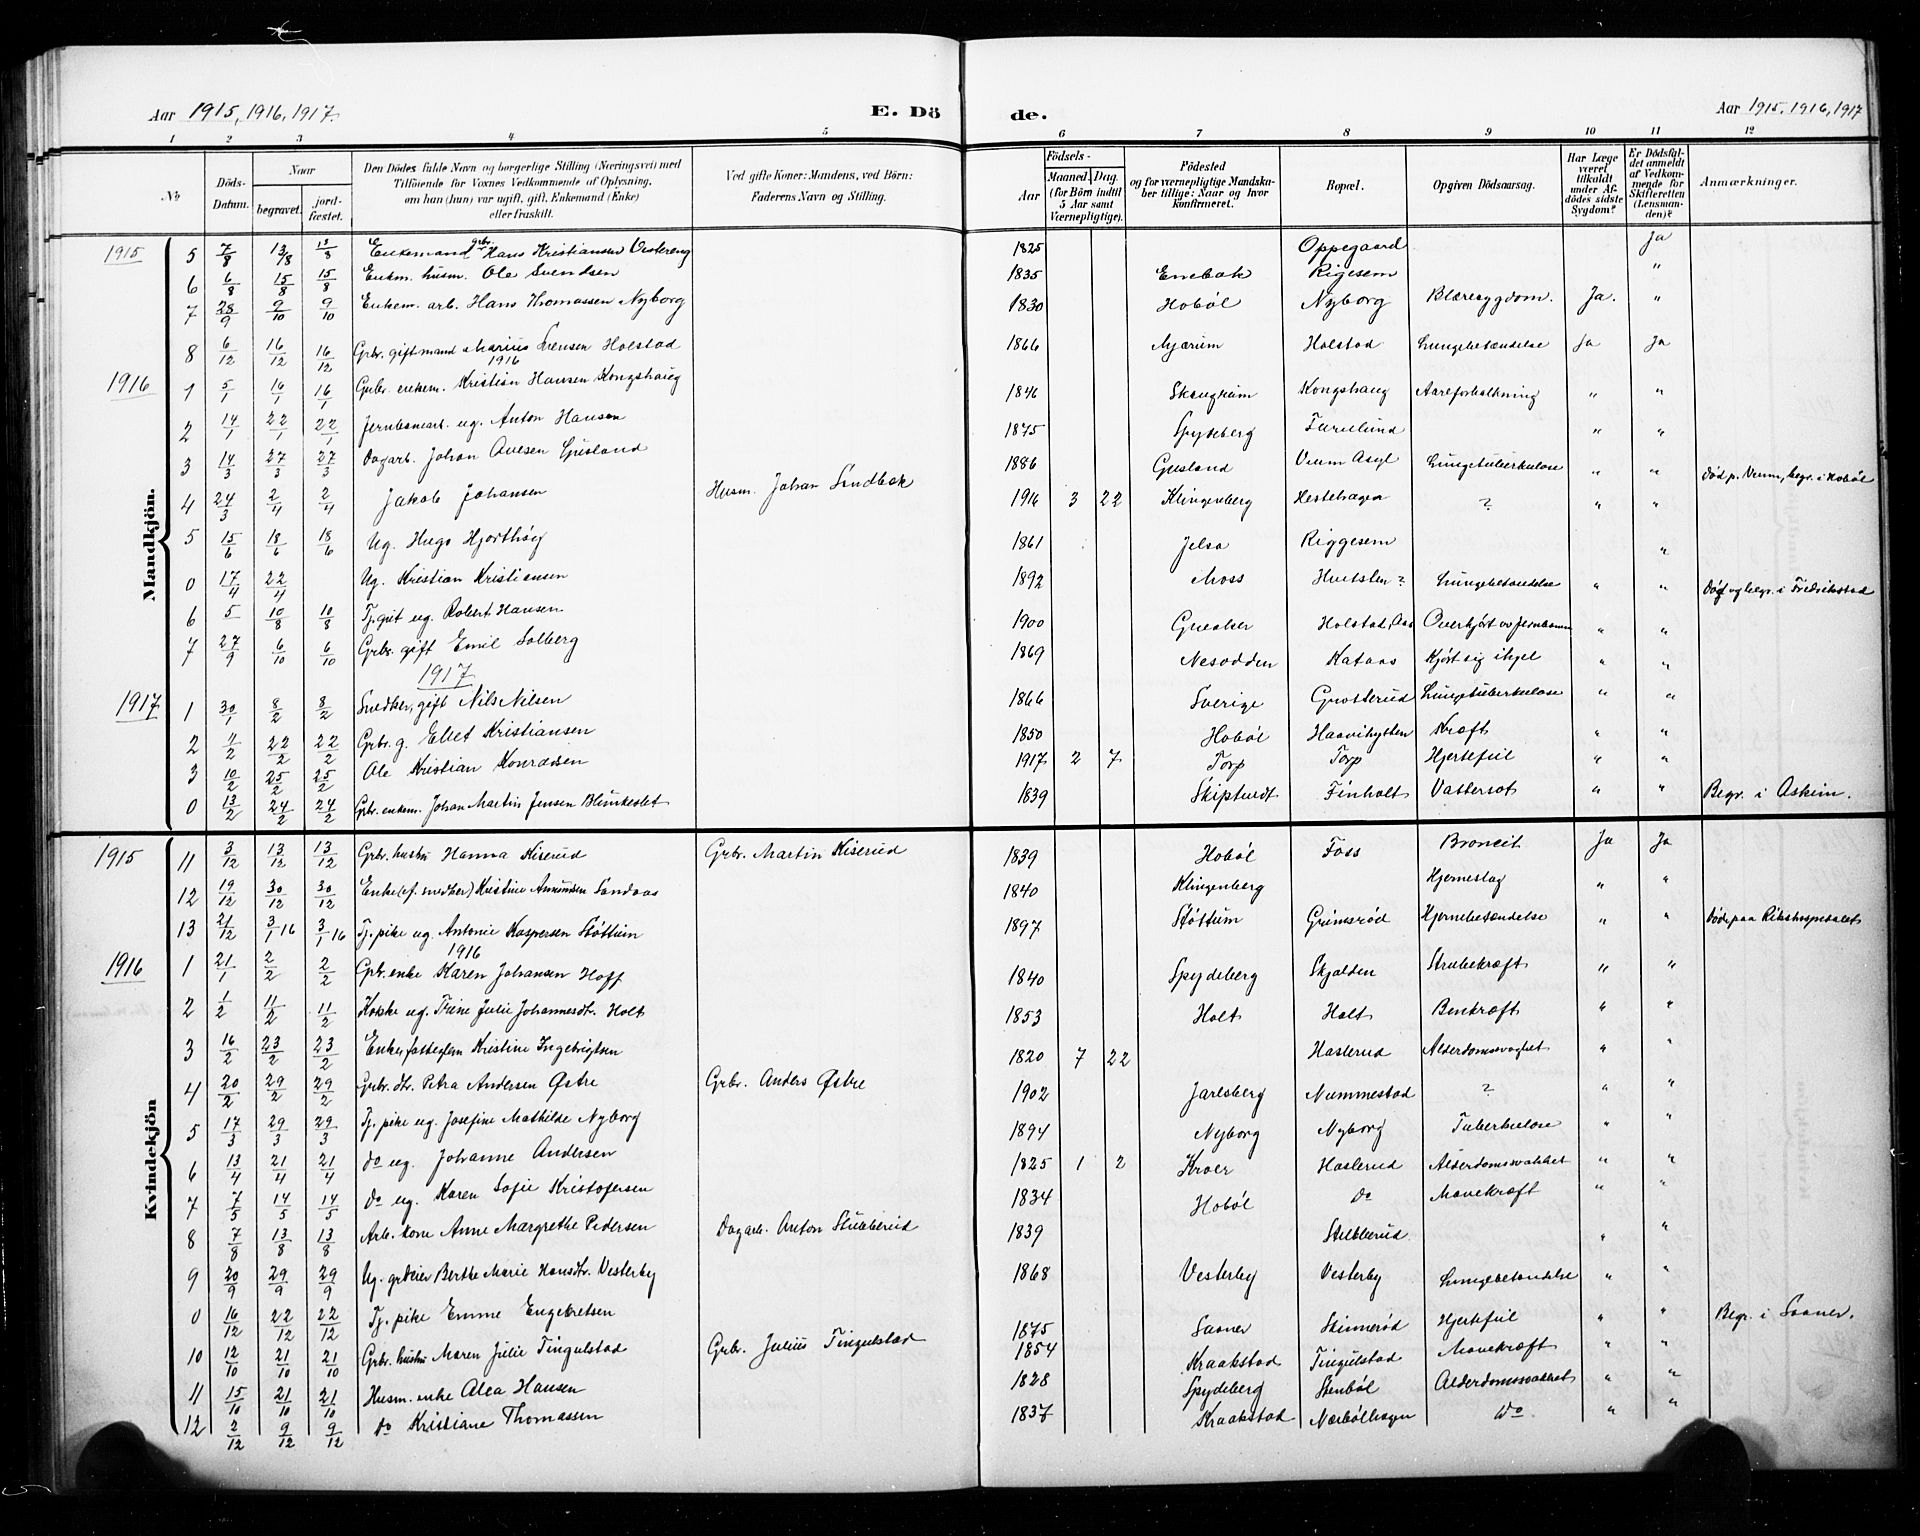 Aar 1915, 1916, 1917.
E. Dö
de.
Aar 1915, 1916, 1917
1 2 3 4 5 6 7 8 9 10 11 12
No
Döds-Datum.
Naar
begravet.
jord-fæstet.
Den Dödes fulde Navn og borgerlige Stilling (Næringsvei) med
Tilföiende for Voxnes Vedkommende af Oplysning,
om han (hun) var ugift, gift, Enkemand (Enke)
eller fraskilt.
Ved gifte Koner: Mandens, ved Börn:
Faderens Navn og Stilling.
Födsels-
Aar
Maaned. Dag.
(for Börn indtil
5 Aar samt
Værnepligtige).
Födested
og for værnepligtige Mandska-
ber tillige: Naar og hvor
konfirmeret.
Bopæl.
Opgiven Dödsaarsag.
Har Læge
været
tilkaldt
under Af-
dödes sidste
Sygdom?
Er Dödsfal-
det anmeldt
af Vedkom-
mende for
Skifteretten
(Lensman-
den)?
Anmærkninger.
Mandkjön.
1915 5 7/8 13/8 13/8 Enkemand grbr. Hans Kristiansen Vestereng 1825 Oppegaard Ja
6 6/8 15/8 15/8 Enkm. husm. Ole Svendsen 1835 Enebak Rigesem "
7 28/9 9/10 9/10 Enkem. arb. Hans Thomassen Nyborg 1830 Hobøl Nyborg Blæresygdom. Ja. "
8 6/12 16/12 16/12 Grbr. gift mand Marius Svensen Holstad 1866 Mjærum Holstad Lungebetændelse Ja Ja
1916
1916 1 5/1 16/1 16/1 Grbr. enkem. Kristian Hansen Kongshaug 1846 Skaugrum Kongshaug Aareforkalkning " "
2 14/1 22/1 22/1 Jernbanearb. ug. Anton Hansen 1875 Spydeberg Furulund " "
3 14/3 27/3 27/3 Dagarb. Johan Avesen Gusland 1886 Gusland Veum Asyl Lungetuberkulose " " Død p. Veum, begr. i Hobøl
4 24/3 2/4 2/4 Jakob Johansen Husm. Johan Sandbak 1916 3 22 Klingenberg Hestehagen ? " "
5 15/6 18/6 18/6 Ug. Hugo Hjorthøy 1861 Jelsa Riggesem "
0 17/4 22/4 Ug. Kristian Kristiansen 1892 Moss ? Lungebetændelse " " Død og begr. i Fredrikstad
6 5 10/8 10/8 Tj.gut ug. Robert Hansen 1900 Greaker Holstad, Aas Overkjørt av Jernbanen " "
7 27/9 6/10 6/10 Grbr. gift Emil Solberg 1869 Nesodden Kataas Kjørt sig ihjel " "
1917
1917 1 30/1 8/2 8/2 Snedker, gift Nils Nilsen 1866 Sverige Grotterud Lungetuberkulose " "
2 11/2 22/2 22/2 Grbr. g. Ellet Kristiansen 1850 Hobøl Haavihytten Kræft " "
3 10/2 25/2 25/2 Ole Kristian Konradsen 1917 2 7 Torp Torp Hjertefeil " "
0 13/2 24/2 24/2 Grbr. enkem. Johan Martin Jensen Blunkeslet 1839 Skiptvedt Finholt Vattersot " " Begr. i Askim.
Kvindekjön
1915 11 3/12 13/12 13/12 Grbr. hustru Hanna Kiserud Grbr. Martin Kiserud 1839 Hobøl Foss Broncit Ja Ja
12 19/12 30/12 30/12 Enke (ef. snedker) Kristine Amundsen Sandaas 1840 Klingenberg Hjerneslag " "
13 21/12 3/1 16 3/1 16 Tj. pike ug. Antonie Kaspersen Støttum 1897 Støttum Grimsrød Hjernebetændelse " " Døde paa Rikshospitalet
1916
1916 1 21/1 2/2 2/2 Grbr. enke Karen Johansen Hoff 1840 Spydeberg Skjalden Strubekræft " "
2 1/2 11/2 11/2 Kokke ug. Trine Julie Johannesdr. Holt 1853 Holt Holt Benkræft " "
3 16/2 23/2 23/2 Enke, fattiglem Kristine Ingebrigtsen 1820 7 22 Haslerud Alderdomssvaghet " "
4 20/2 29/2 29/2 Grbr. dr. Petra Andersen Østre Grbr. Anders Østre 1902 Jarlsberg Nummestad ? " "
5 17/3 29/3 29/3 Tj. pike ug. Josefine Mathilde Nyborg 1894 Nyborg Nyborg Tuberkulose " "
6 13/4 21/4 21/4 do ug. Johanne Andersen 1825 1 2 Kroer Haslerud Alderdomssvakhet " "
7 7/5 14/5 14/5 do ug. Karen Sofie Kristofersen 1834 Hobøl do Mavekræft " "
8 7/8 13/8 13/8 Arb. kone Anne Margrethe Pedersen Dagarb. Anton Stubberud 1839 Stubberud " "
9 20/9 29/9 29/9 Ug. grdeier Berthe Marie Hansdr. Vesterby 1868 Vesterby Vesterby Lungebetændelse " "
0 16/12 22/12 22/12 Tj. pike Emma Engebretsen 1875 Saaner Skinnerød Hjertefeil " " Begr. i Saaner.
10 12/10 21/10 21/10 Grbr. hustru Maren Julie Tingulstad Grbr. Julius Tingulstad 1854 Kraakstad Tingulstad Mavekræft " "
11 15/10 21/10 21/10 Husm. enke Alea Hansen 1828 Spydeberg Stenbøl Alderdomssvakhet " "
12 2/12 9/12 9/12 do Kristiane Thomassen 1837 Kraakstad Nærbølhagen do " "